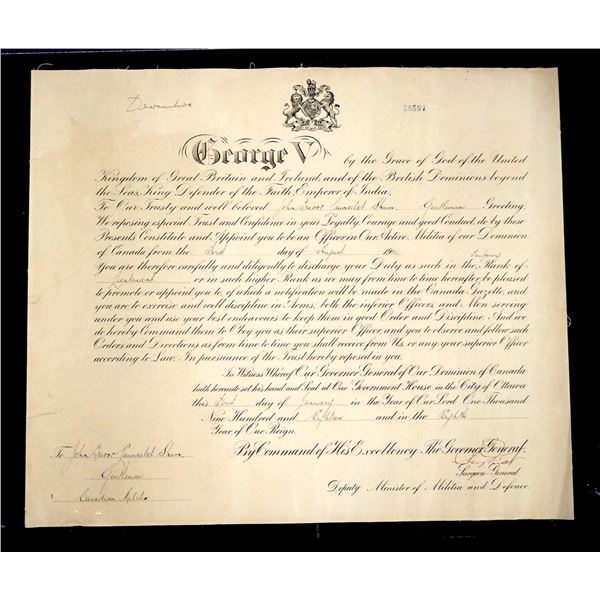 Devonshire
36597
George V by the Grace of God of the United
Kingdom of Great Britain and Ireland, and of the British Dominions beyond
the Seas, King Defender of the Faith, Emperor of India.
To Our Trusty and well beloved John Trevor Launcelot Gentleman Greeting.
We reposing especial Trust and Confidence in your Loyalty, Courage and good Conduct, do by these
Presents Constitute and Appoint you to be an Officer in Our Active Militia of our Dominion
of Canada from the day of August 19
You are therefore carefully and diligently to discharge your Duty as such in the Rank of
Lieutenant or in such higher Rank as we may from time to time hereafter be pleased
to promote or appoint you to, of which a notification will be made in the Canada Gazette, and
you are to exercise and well discipline in Arms, both the inferior Officers and Men serving
under you and use your best endeavours to keep them in good Order and Discipline. And we
do hereby Command them to Obey you as their superior Officer, and you to observe and follow such
Orders and Directions as from time to time you shall receive from Us, or any your superior Officer
according to Law. In pursuance of the Trust hereby reposed in you.
In Witness Whereof Our Governor General of Our Dominion of Canada
hath hereunto set his hand and Seal at Our Government House in the City of Ottawa
this day of January in the Year of Our Lord One Thousand
Nine Hundred and Eighteen and in the Eighth
Year of Our Reign.
By Command of His Excellency The Governor General.
To John Trevor Launcelot
Surgeon-General.
Gentleman
Deputy Minister of Militia and Defence.
Canadian Militia